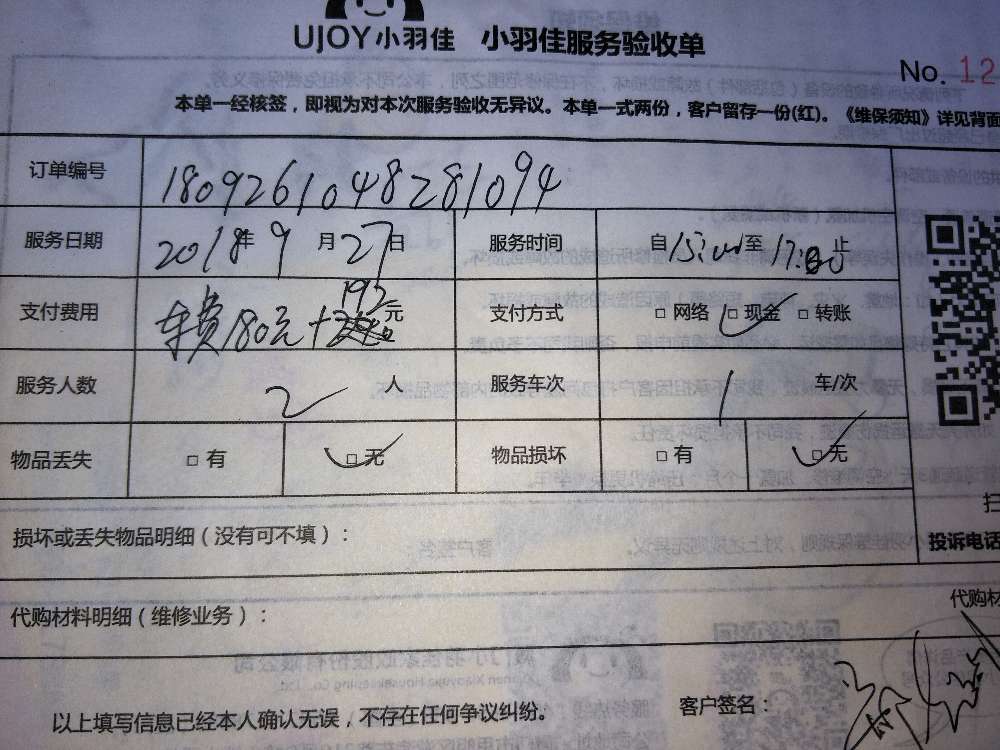 UJOY小羽佳 小羽佳服务验收单
No. 12
本单一经核签，即视为对本次服务验收无异议。本单一式两份，客户留存一份(红)。《维保须知》详见背面
订单编号 1809261048281094
服务日期 2018年9月27日 服务时间 自15:00至17:00止
支付费用 车费180元+192元 支付方式 □网络 □现金 □转账
服务人数 2人 服务车次 1车/次
物品丢失 □有 □无 物品损坏 □有 □无
损坏或丢失物品明细（没有可不填）：
扫
投诉电话
代购材料明细（维修业务）：
代购材
以上填写信息已经本人确认无误，不存在任何争议纠纷。
客户签名：